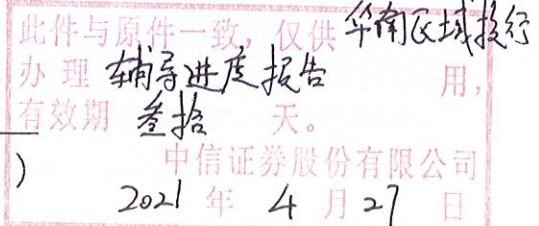 此件与原件一致，仅供 华南区域投行
办理 辅导进度报告 用，
有效期 叁拾 天。
中信证券股份有限公司
)
2021 年 4 月 27 日